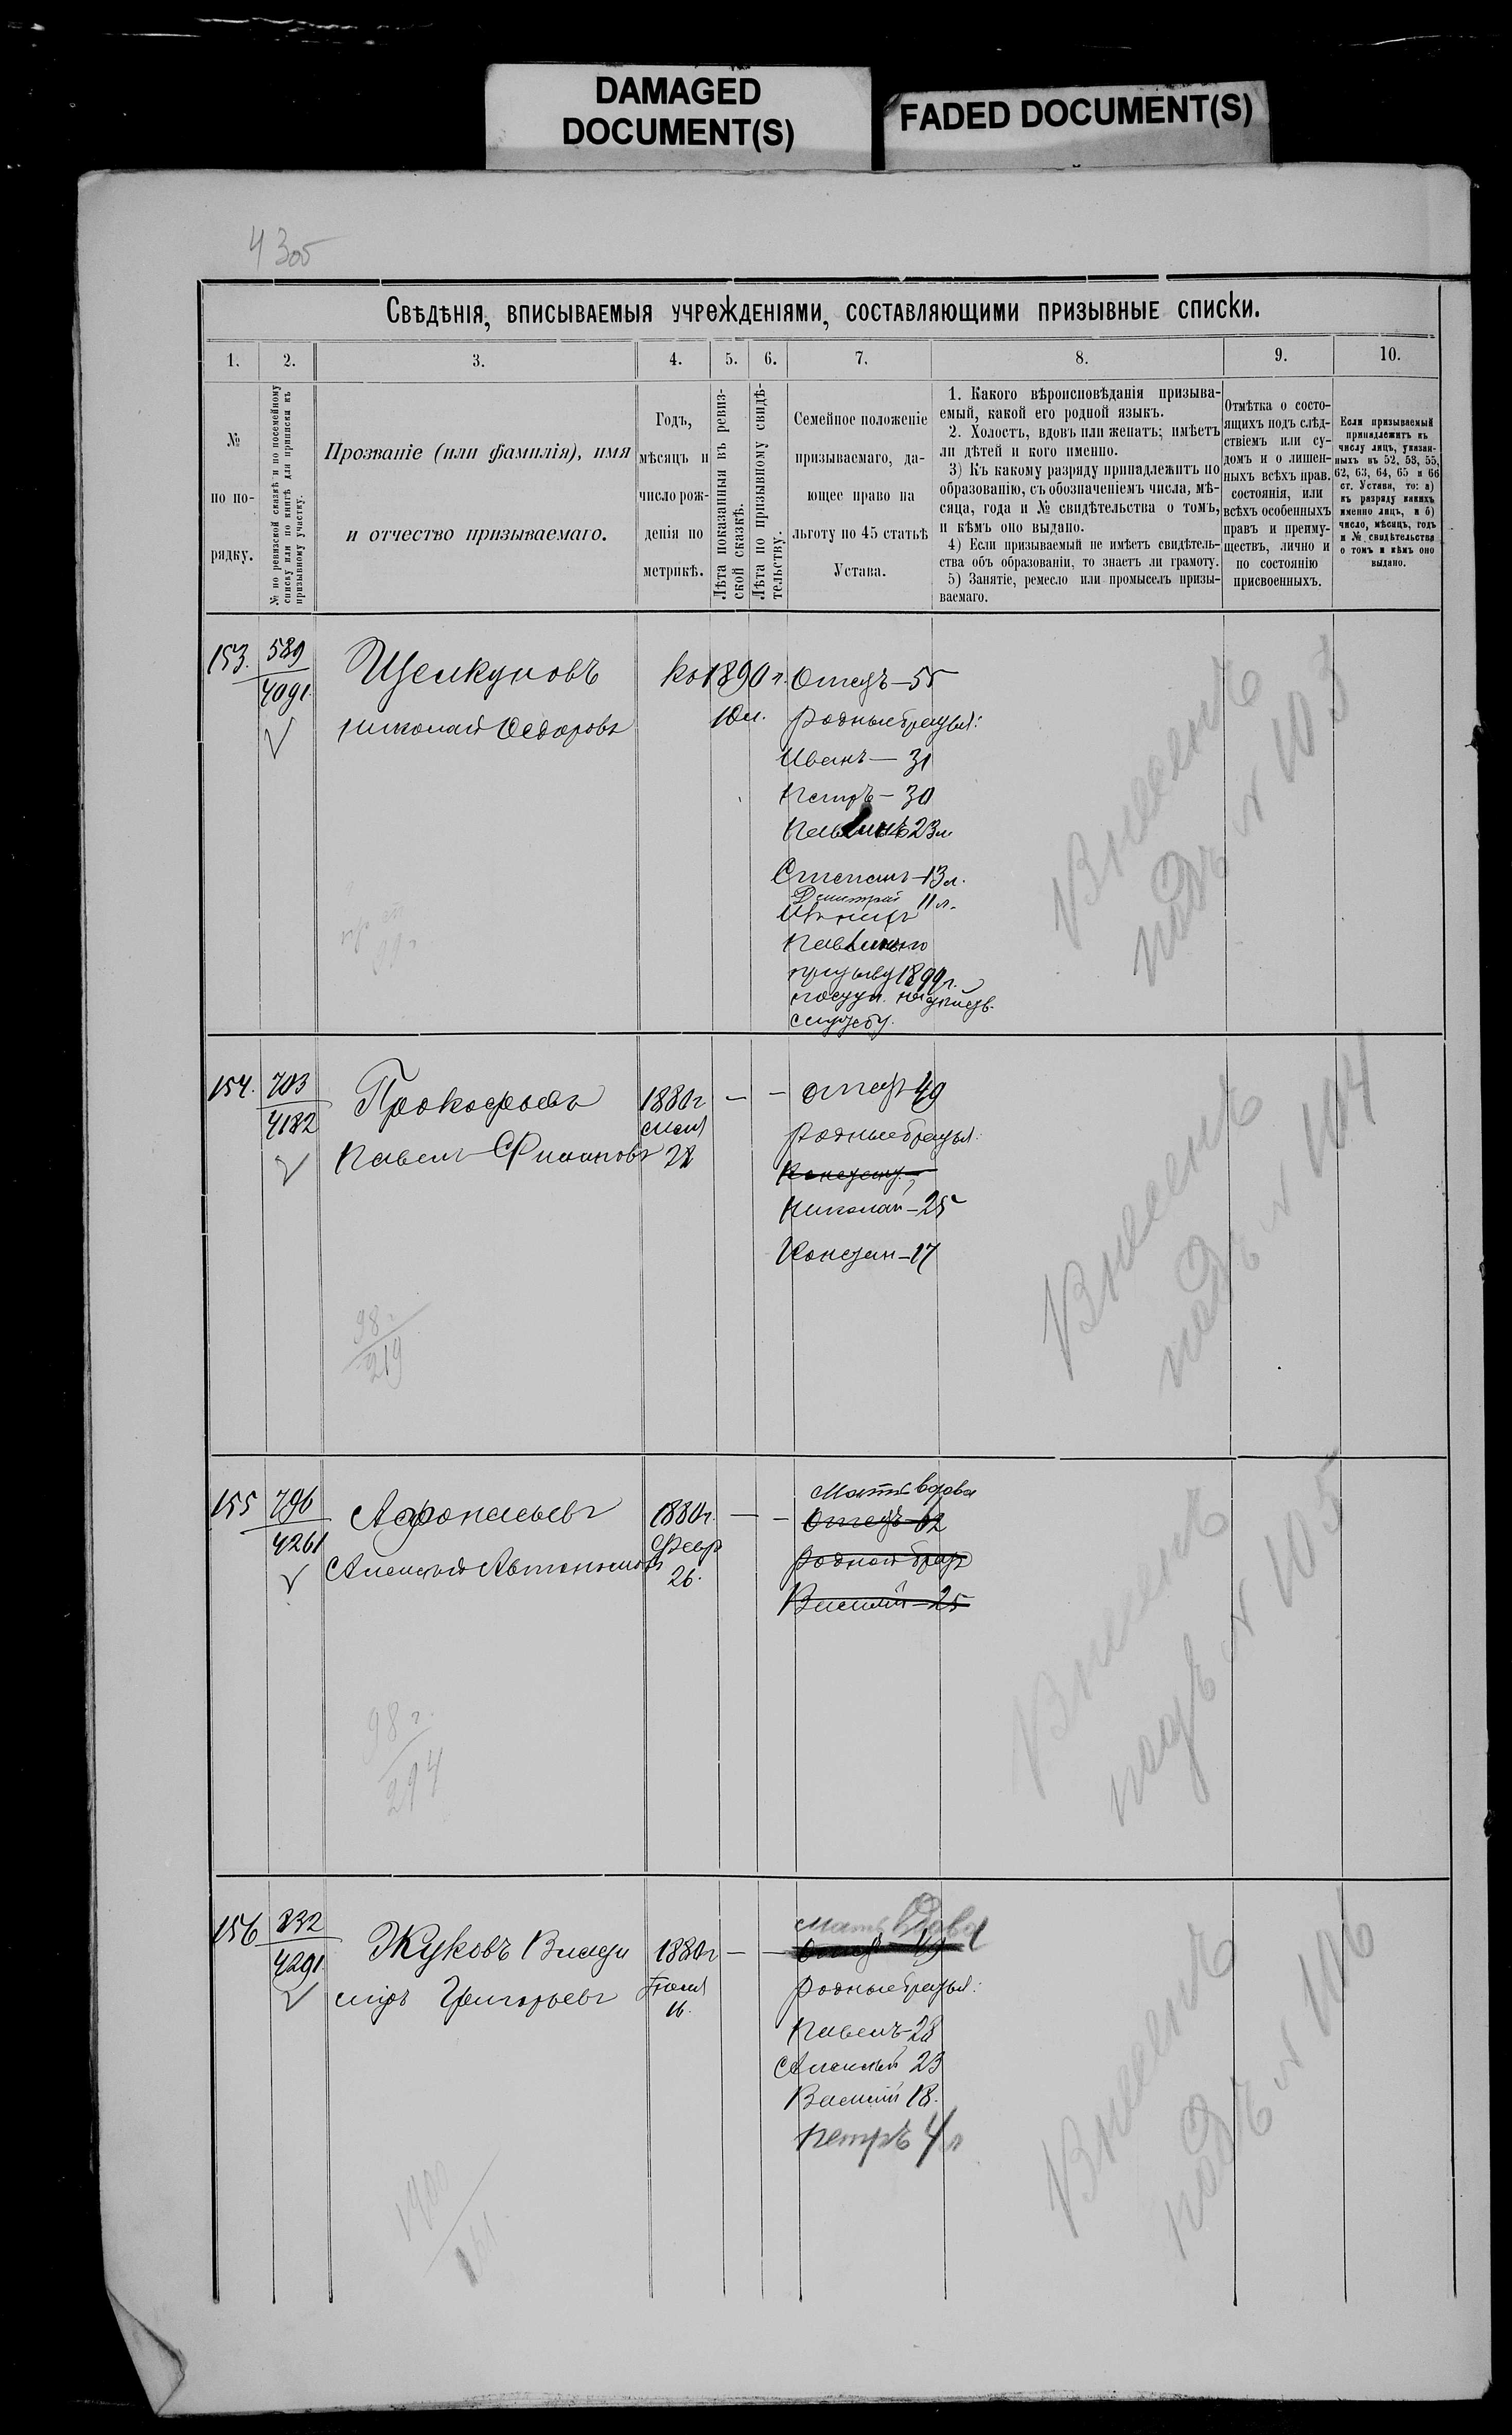 DAMAGED
DOCUMENT(S)
FADED DOCUMENT(S)
4305
Свѣдѣнія, вписываемыя учрежденіями, составляющими призывные списки.
1. 2. 3. 4. 5. 6. 7. 8. 9. 10.
№
по по-
рядку.
№ по ревизской сказкѣ и по посемейному
списку или по книгѣ для приписки къ
призывному участку.
Прозваніе (или фамилія), имя
и отчество призываемаго.
Годъ,
мѣсяцъ и
число рож-
денія по
метрикѣ.
Лѣта показанныя въ ревиз-
ской сказкѣ.
Лѣта по призывному свидѣ-
тельству.
Семейное положеніе
призываемаго, да-
ющее право на
льготу по 45 статьѣ
Устава.
1. Какого вѣроисповѣданія призыва-
емый, какой его родной языкъ.
2. Холостъ, вдовъ или женатъ; имѣетъ
ли дѣтей и кого именно.
3) Къ какому разряду принадлежитъ по
образованію, съ обозначеніемъ числа, мѣ-
сяца, года и № свидѣтельства о томъ,
и кѣмъ оно выдано.
4) Если призываемый не имѣетъ свидѣтель-
ства объ образованіи, то знаетъ ли грамоту.
5) Занятіе, ремесло или промыселъ призы-
ваемаго.
Отмѣтка о состо-
ящихъ подъ слѣд-
ствіемъ или су-
домъ и о лишен-
ныхъ всѣхъ прав.
состоянія, или
всѣхъ особенныхъ
правъ и преиму-
ществъ, лично и
по состоянію
присвоенныхъ.
Если призываемый
принадлежитъ къ
числу лицъ, указан-
ныхъ въ 52, 53, 55,
62, 63, 64, 65 и 66
ст. Устава, то: а)
къ разряду какихъ
именно лицъ, и б)
число, мѣсяцъ, годъ
и № свидѣтельства
о томъ и кѣмъ оно
выдано.
153. 589
4091
Щелкуновъ
Николай Ѳедоровъ
ко 1890 г.
10 л.
Отецъ—55
родные братья:
Иванъ—31
Петръ—30
Павелъ 23
Степанъ—13 л.
Дмитрій 11 л.
призыву 1899 г.
службу.
Внесенъ
подъ № 103
154. 703
4182
Прокофьевъ
Павелъ Филиповъ
1880 г
мая
22
— —
отецъ 49
родные братья:
Николай—25
17
98 г.
219
Внесенъ
подъ № 104
155 796
4261
Афонасьевъ
Алексѣй Автономовъ
1880 г.
Февр
26.
— —
Мать вдова
Отецъ 62
родной братъ
Василій—25
98 г.
294
Внесенъ
подъ № 105
156 832
4291
Жуковъ Влади
миръ Григорьевъ
1880 г
Іюля
16.
— —
Мать вдова
Отецъ 49
родные братья:
Павелъ—28
Алексѣй 23
Василій 18.
Петръ 4 л
1900
161
Внесенъ
подъ № 106